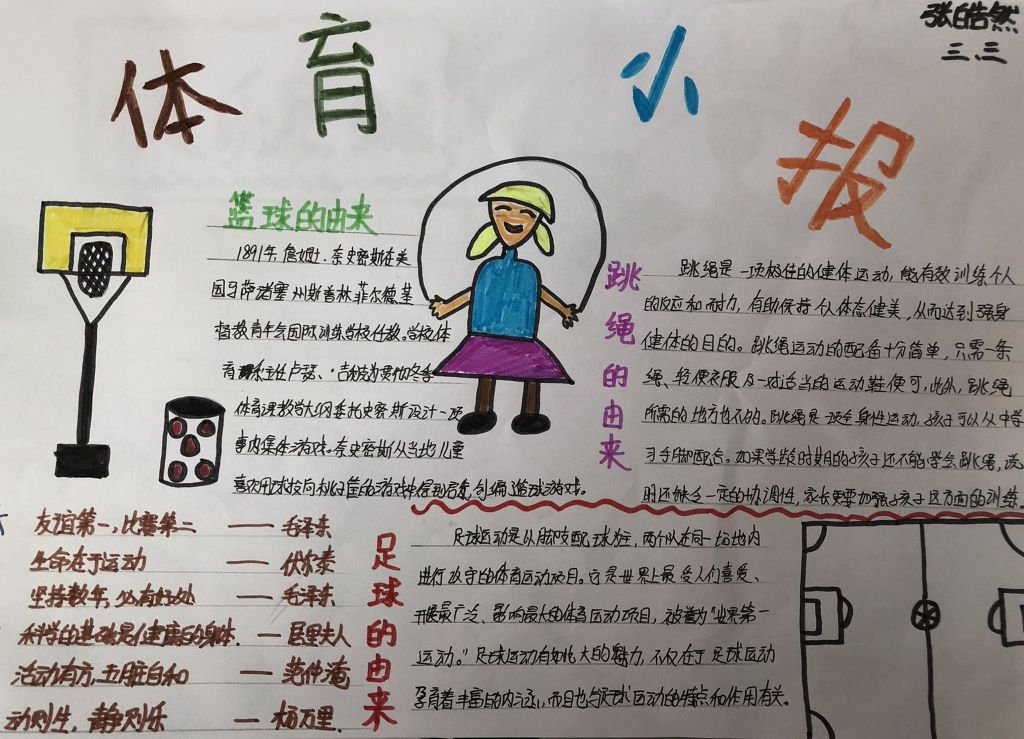 体育小报
张皓然
三.三
篮球的由来
1891年,詹姆士.奈史密斯在美
国马萨诸塞州斯普林菲尔德基
督教青年会国际训练学校任教。学校体
育系主任卢瑟、·吉利克为贯彻冬季
体育课教学大纲委托史密斯设计一项
室内集体游戏。奈史密斯从当地儿童
喜欢用球投向桃子筐的游戏中得到启发,创编篮球游戏。
跳绳的由来
跳绳是一项极佳的健体运动,能有效训练个人
的反应和耐力,有助保持个人体态健美,从而达到强身
健体的目的。跳绳运动的配备十分简单,只需一条
绳、轻便衣服及一对适当的运动鞋便可,此外,跳绳
所需的地方也不大。跳绳是一项全身性运动,孩子可以从中学
习手脚配合。如果学龄时期的孩子还不能学会跳绳,说
明还缺乏一定的协调性,家长更要加强孩子这方面的训练。
友谊第一,比赛第二 —— 毛泽东
生命在于运动 —— 伏尔泰
坚持数年,必有好处 —— 毛泽东
科学的基础是健康的身体. — 居里夫人
活动有方,五脏自和 — 范仲淹
动则生,静则乐 — 杨万里.
足球的由来
足球运动是以脚支配球为主,两个队在同一场地内
进行攻守的体育运动项目。它是世界上最受人们喜爱、
开展最广泛、影响最大的体育运动项目,被誉为“世界第一
运动。”足球运动有如此大的魅力,不仅在于足球运动
孕育着丰富的内涵,而且也与足球运动的特点和作用有关。